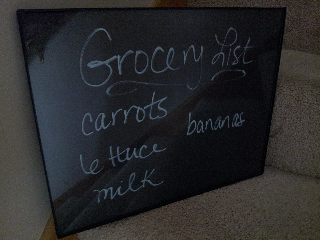 Grocery List
carrots
bananas
lettuce
milk